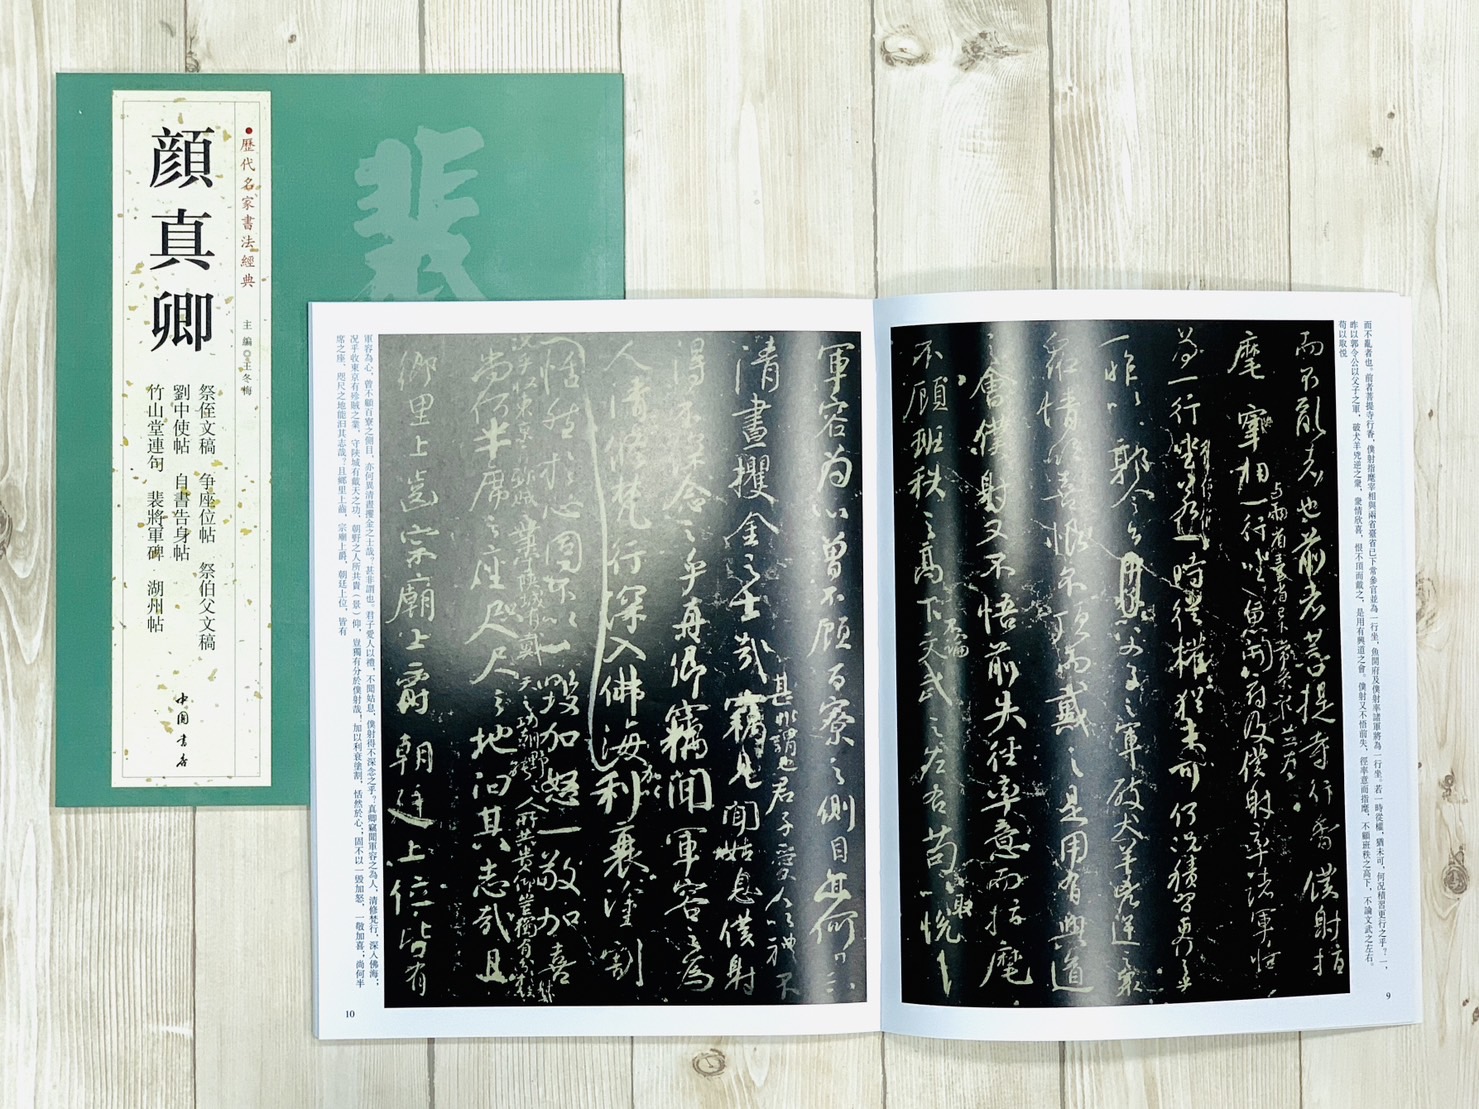 歷代名家書法經典
主編◎王冬梅
顔真卿
祭侄文稿 争座位帖 祭伯父文稿
劉中使帖 自書告身帖
竹山堂連句 裴將軍碑 湖州帖
中国書店
裴
而不亂者也。前者菩提寺行香，僕射指麾宰相與兩省臺省已下常參官並為一行坐，魚開府及僕射率諸軍將為一行坐。若一時從權，猶未可，何況積習更行之乎？一
昨以郭令公以父子之軍，破犬羊兇逆之衆，衆情欣喜，恨不頂而戴之，是用有興道之會。僕射又不悟前失，徑率意而指麾，不顧班秩之高下，不論文武之左右。
苟以取悅
而不亂者也前者菩提寺行香僕射指
麾宰相與兩省臺省已下常參官並為一行坐魚開府及僕射率諸軍將
為一行坐若一時從權猶未可何況積習更行之乎
一昨以郭令公以父子之軍破犬羊兇逆之衆
衆情欣喜恨不頂而戴之是用有興道
之會僕射又不悟前失徑率意而指麾
不顧班秩之高下不論文武之左右苟以取悅
9
軍容為心曾不顧百寮之側目亦何異
清晝攫金之士哉甚非謂也君子愛人以禮不
聞姑息僕射得不深念之乎真卿竊聞軍容之為
人清修梵行深入佛海利衰塗割
恬然於心固不以一毀加怒一敬加喜
尚何半席之座咫尺之地汩其志哉且
鄉里上齒宗廟上爵朝廷上位皆有
軍容為心，曾不顧百寮之側目，亦何異清晝攫金之士哉。甚非謂也。君子愛人以禮，不聞姑息，僕射得不深念之乎？真卿竊聞軍容之為人，清修梵行，深入佛海；
況乎收東京有殄賊之業，守陝城有戴天之功，朝野之人所共貴（景）仰，豈獨有分於僕射哉！加以利衰塗割，恬然於心；固不以一毀加怒，一敬加喜；尚何半
席之座，咫尺之地能汩其志哉？且鄉里上齒，宗廟上爵，朝廷上位，皆有
10